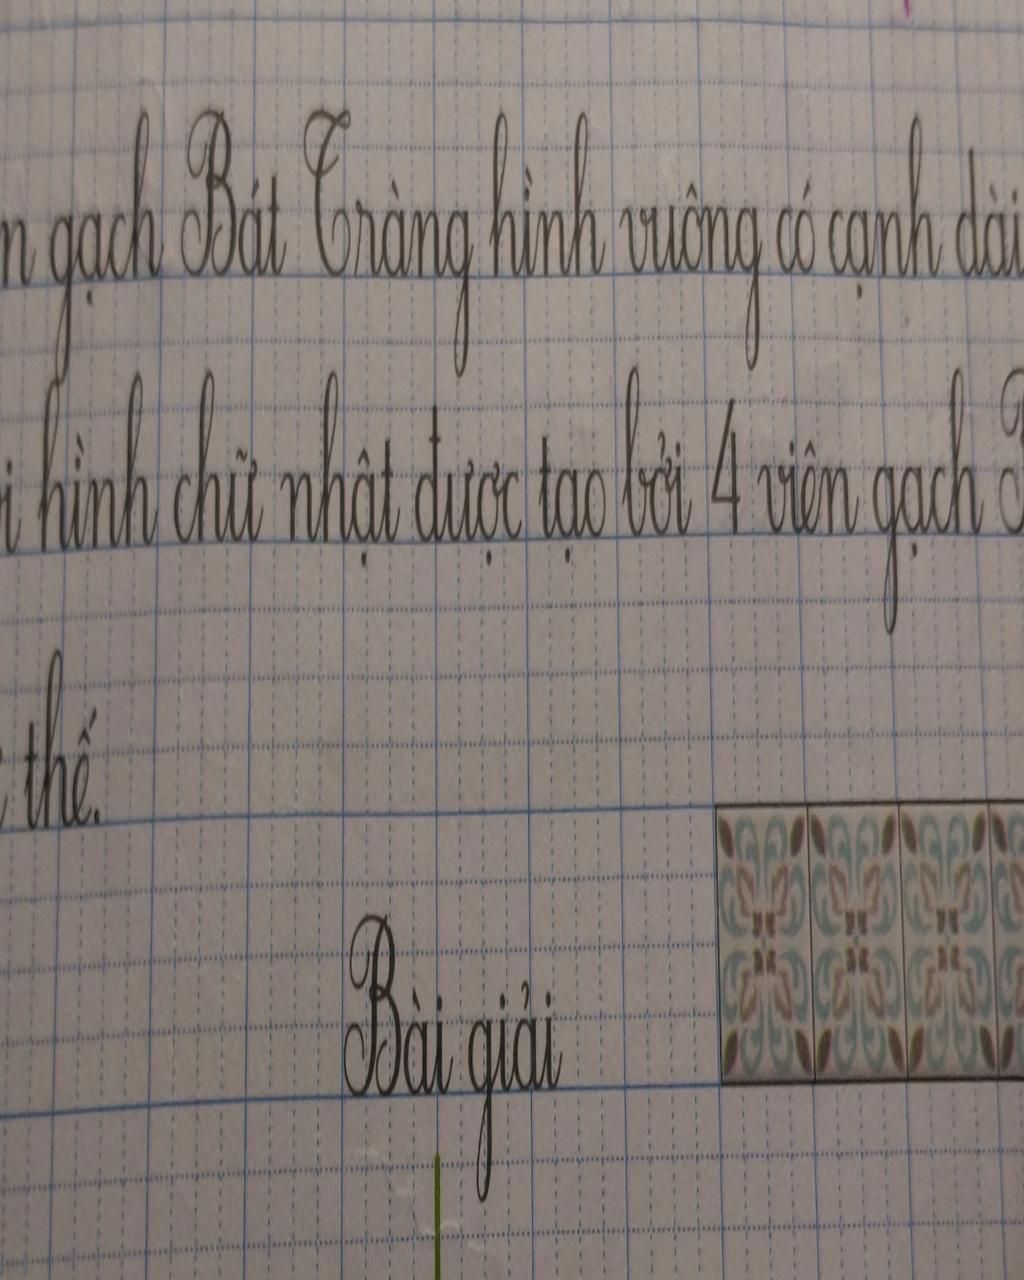 n gạch Bát Tràng hình vuông có cạnh dài
i hình chữ nhật được tạo bởi 4 viên gạch
thế.
Bài giải